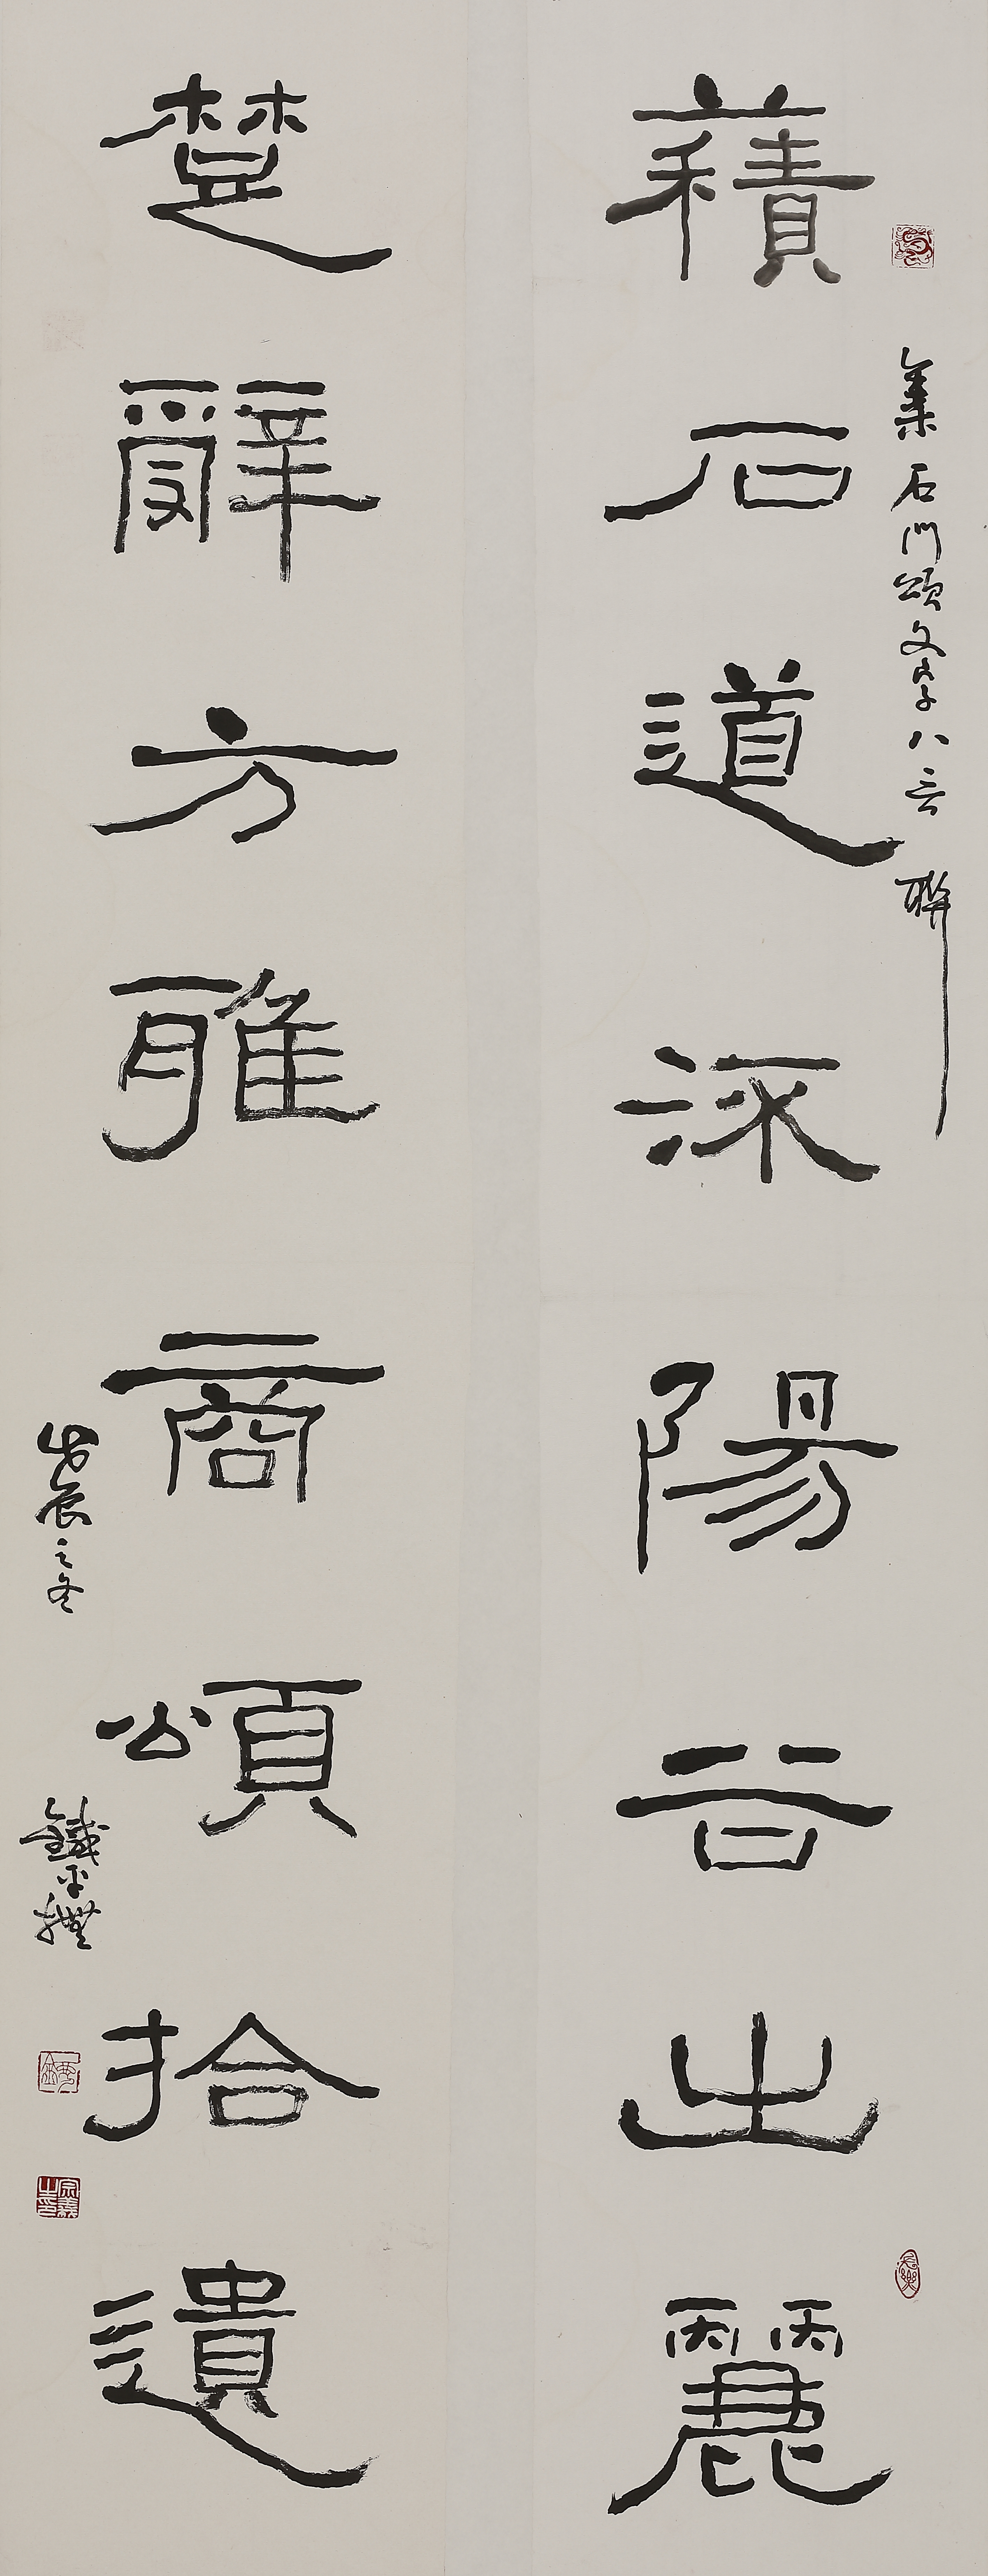 積石道深陽谷出麗
集石門頌文字八言聯
楚辭方雅商頌拾遺
戊辰之冬
鐵平撰